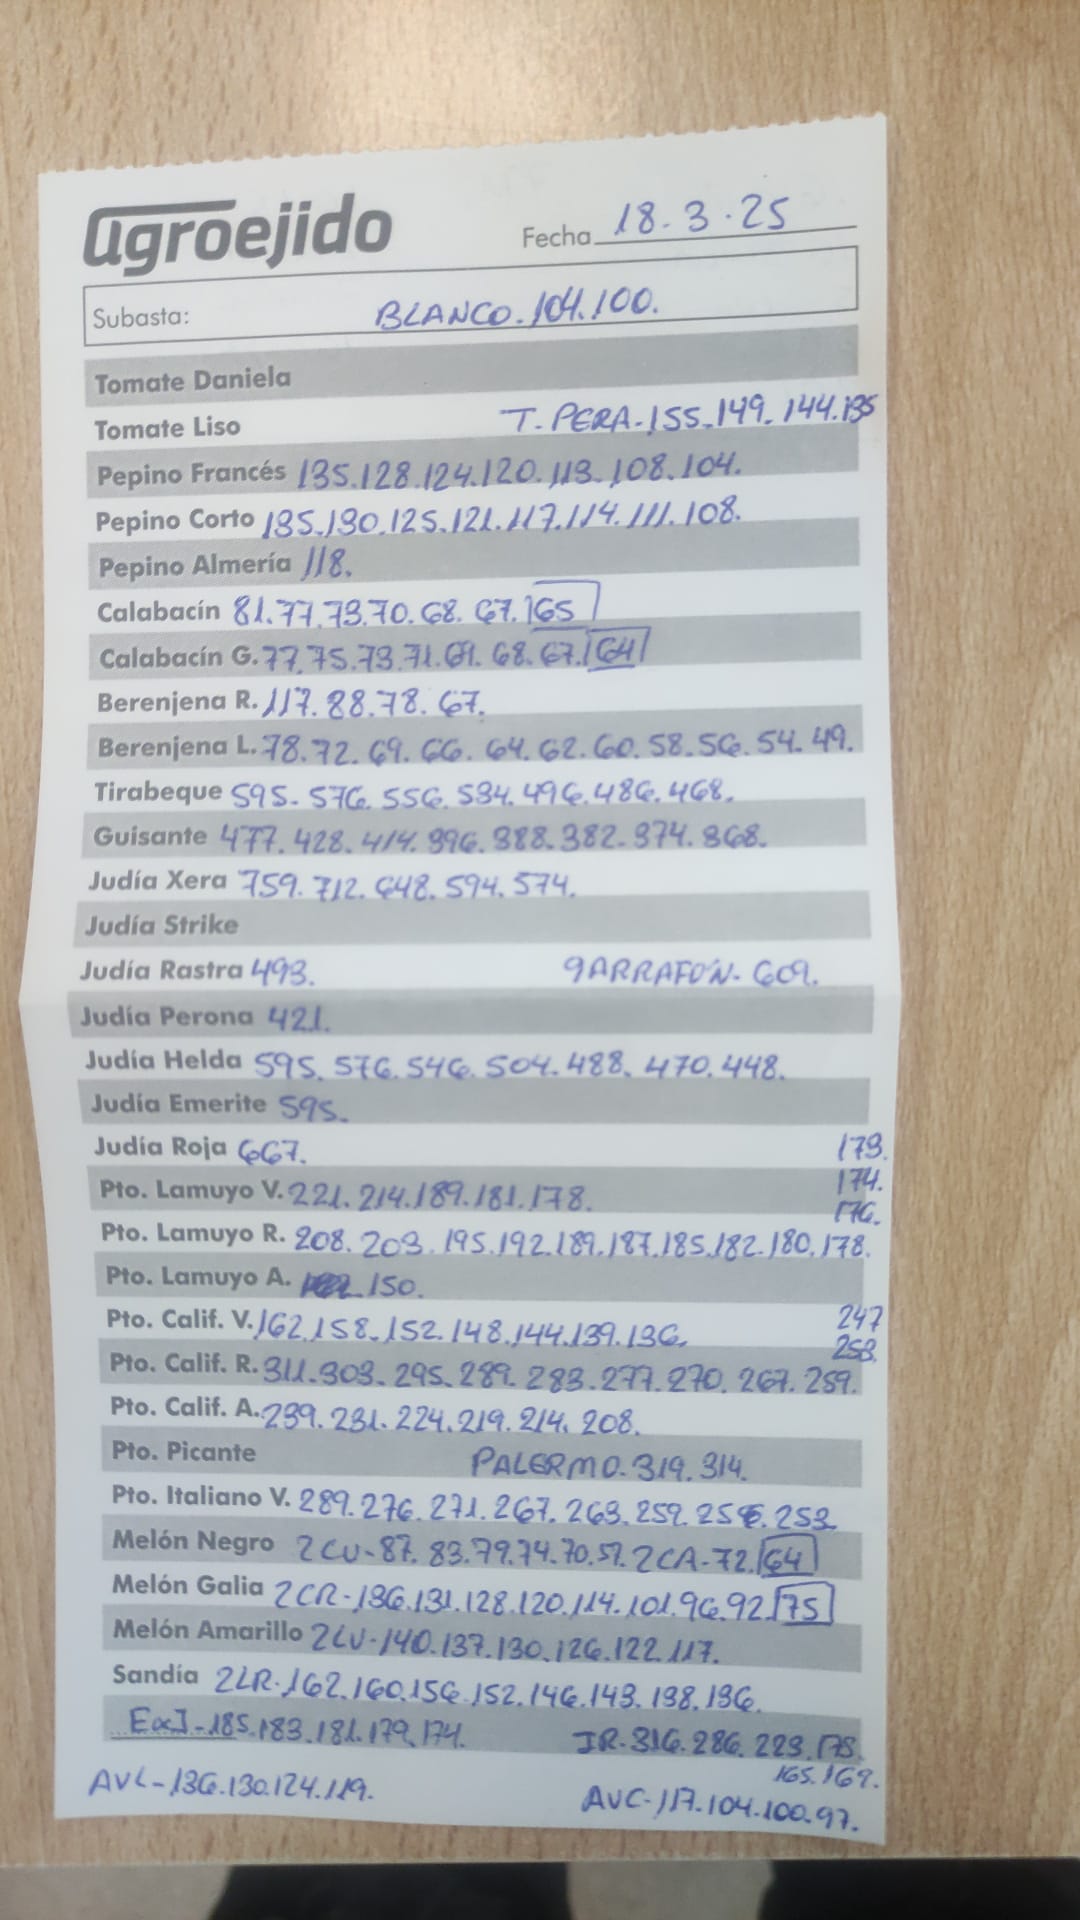 agroejido
Fecha 18.3.25
Subasta: BLANCO.104.100.
Tomate Daniela
Tomate Liso T. PERA.155.149.144.135
Pepino Francés 135.128.124.120.113.108.104.
Pepino Corto 135.130.125.121.117.114.111.108.
Pepino Almería 118.
Calabacín 81.77.73.70.68.67.65
Calabacín G. 77.75.73.71.69.68.67.64
Berenjena R. 117.88.78.67.
Berenjena L. 78.72.69.66.64.62.60.58.56.54.49.
Tirabeque 595.576.556.534.496.486.468.
Guisante 477.428.414.396.388.382.374.368.
Judía Xera 759.712.648.594.574.
Judía Strike
Judía Rastra 493. GARRAFÓN-609.
Judía Perona 421.
Judía Helda 595.576.546.504.488.470.448.
Judía Emerite 595.
Judía Roja 667.
173.
174.
176.
Pto. Lamuyo V. 221.214.189.181.178.
Pto. Lamuyo R. 208.203.195.192.189.187.185.182.180.178.
Pto. Lamuyo A. 150.
Pto. Calif. V. 162.158.152.148.144.139.136.
247
253.
Pto. Calif. R. 311.303.295.289.283.277.270.267.259.
Pto. Calif. A. 239.231.224.219.214.208.
Pto. Picante PALERMO.319.314.
Pto. Italiano V. 289.276.271.267.263.259.256.253.
Melón Negro 2CU-87.83.79.74.70.57.2CA-72.64
Melón Galia 2CR-136.131.128.120.114.101.96.92.75
Melón Amarillo 2LV-140.137.130.126.122.117.
Sandía 2LR.162.160.156.152.146.143.138.136.
ExJ-185.183.181.179.174. JR-316.286.223.178.
165.169.
AVL-136.130.124.119. AVC-117.104.100.97.